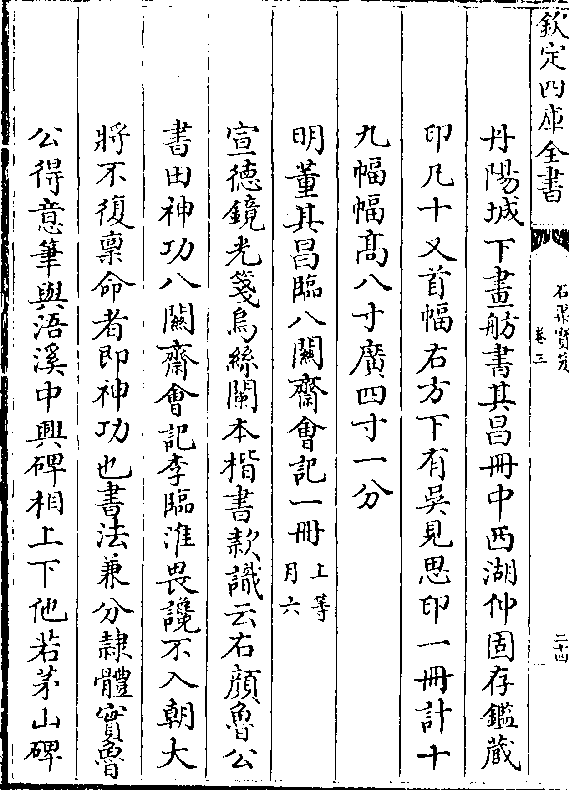 欽定四庫全書
石渠寶笈
卷三
二十四
丹陽城下畫舫書其昌冊中西湖仲固存鑑蔵
印凡十又首幅右方下有吳見思印一冊計十
九幅幅髙八寸廣四寸一分
明董其昌臨八關齋會記一冊 上等
月六
宣徳鏡光箋烏絲闌本楷書款識云右顔魯公
書田神功八關齋會記李臨淮畏讒不入朝大
將不復禀命者即神功也書法兼分隸體實魯
公得意筆與浯溪中興碑相上下他若茅山碑